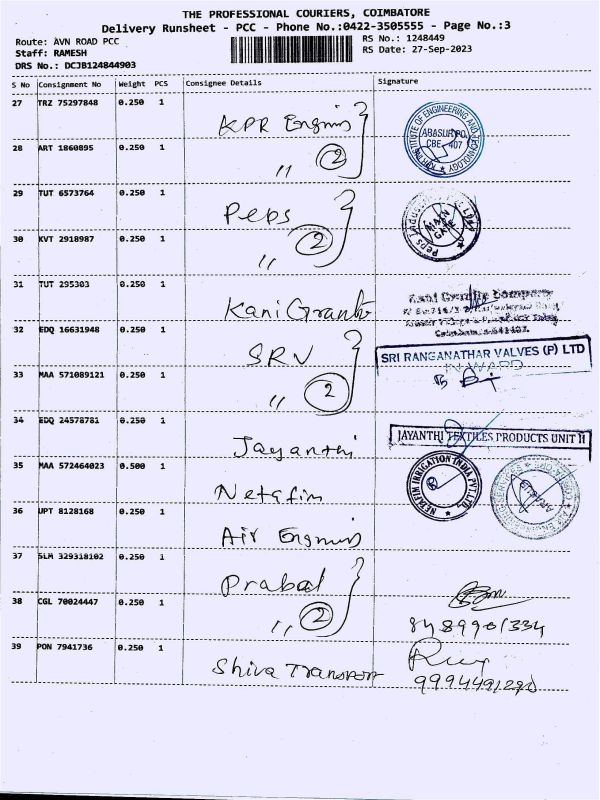 THE PROFESSIONAL COURIERS, COIMBATORE
Delivery Runsheet - PCC - Phone No.:0422-3505555 - Page No.:3
Route: AVN ROAD PCC
RS No.: 1248449
Staff: RAMESH
RS Date: 27-Sep-2023
DRS No.: DCJB124844903
S No Consignment No Weight PCS Consignee Details Signature
27 TRZ 75297848 0.250 1
KPR Engins
28 ART 1860895 0.250 1
,, 2
INSTITUTE OF ENGINEERING AND TECHNOLOGY
CBE 407
29 TUT 6573764 0.250 1
Peps
30 KVT 2918987 0.250 1
,, 2
MAIN GATE
31 TUT 295303 0.250 1
Kani Granito
Kani Granito Company
32 EDQ 16631948 0.250 1
SRV
SRI RANGANATHAR VALVES (P) LTD
INWARD
33 MAA 571089121 0.250 1
,, 2
34 EDQ 24578781 0.250 1
Jayanthi
JAYANTHI TEXTILES PRODUCTS UNIT II
35 MAA 572464023 0.500 1
Netafim
NETAFIM IRRIGATION INDIA PVT.LTD.
36 UPT 8128168 0.250 1
Air Engins
37 SLM 329318102 0.250 1
Prabal
38 CGL 70024447 0.250 1
,, 2
8489901334
39 PON 7941736 0.250 1
Shiva Transport
9994491290